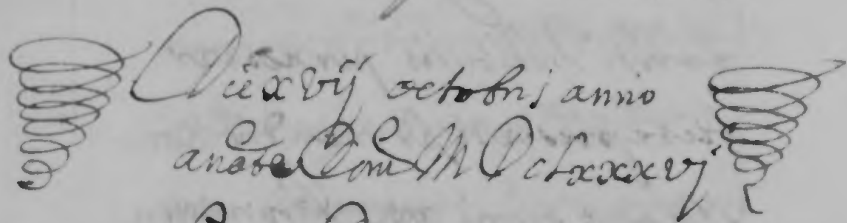 Die xvij octobris anno
a natte Domi M Dclxxxvj